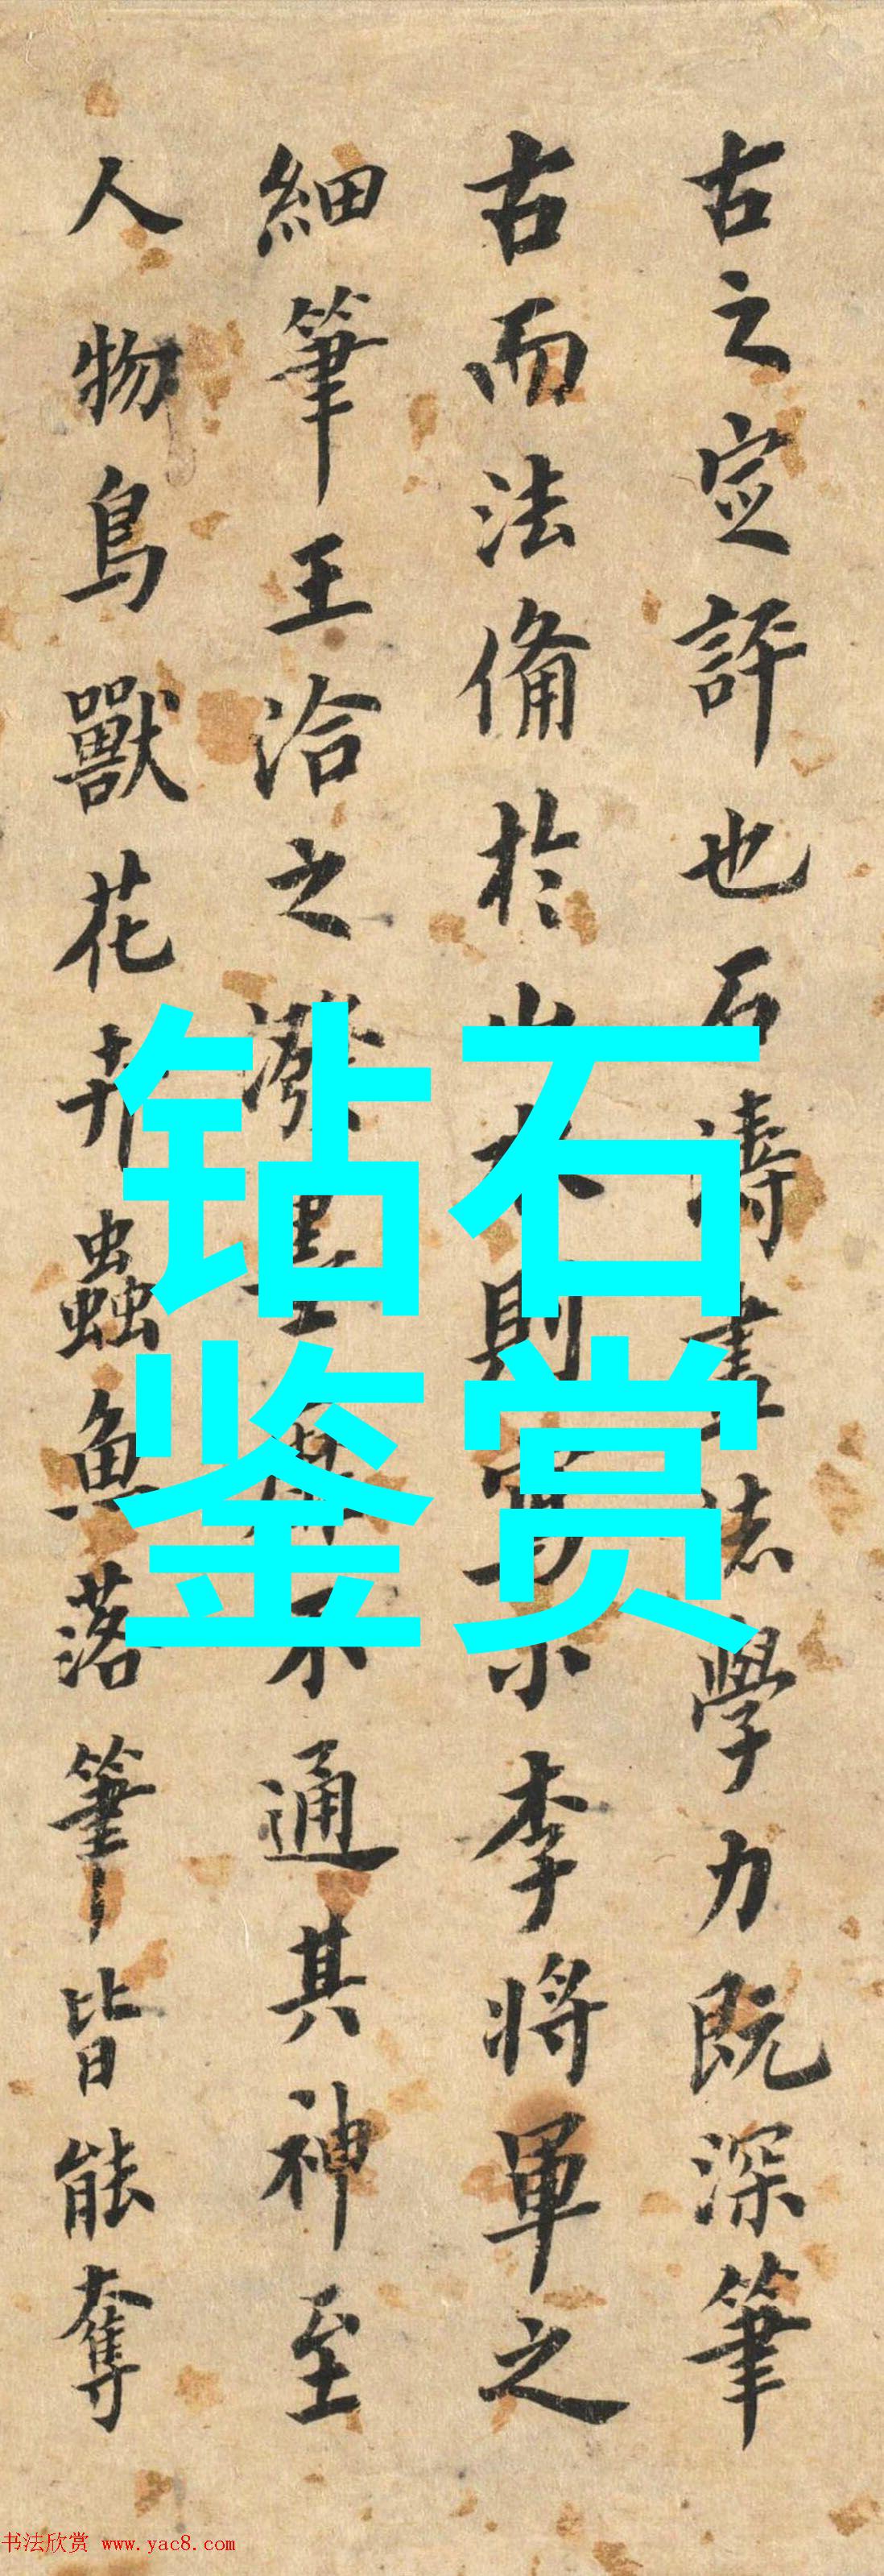 古之定評也石濤學力既深筆
古而法備於山水則小李將軍之
細筆王洽之潑墨靡不通其神至
人物鳥獸花卉蟲魚落筆皆能奪
钻石
鉴赏
书法欣赏 www.yac8.com